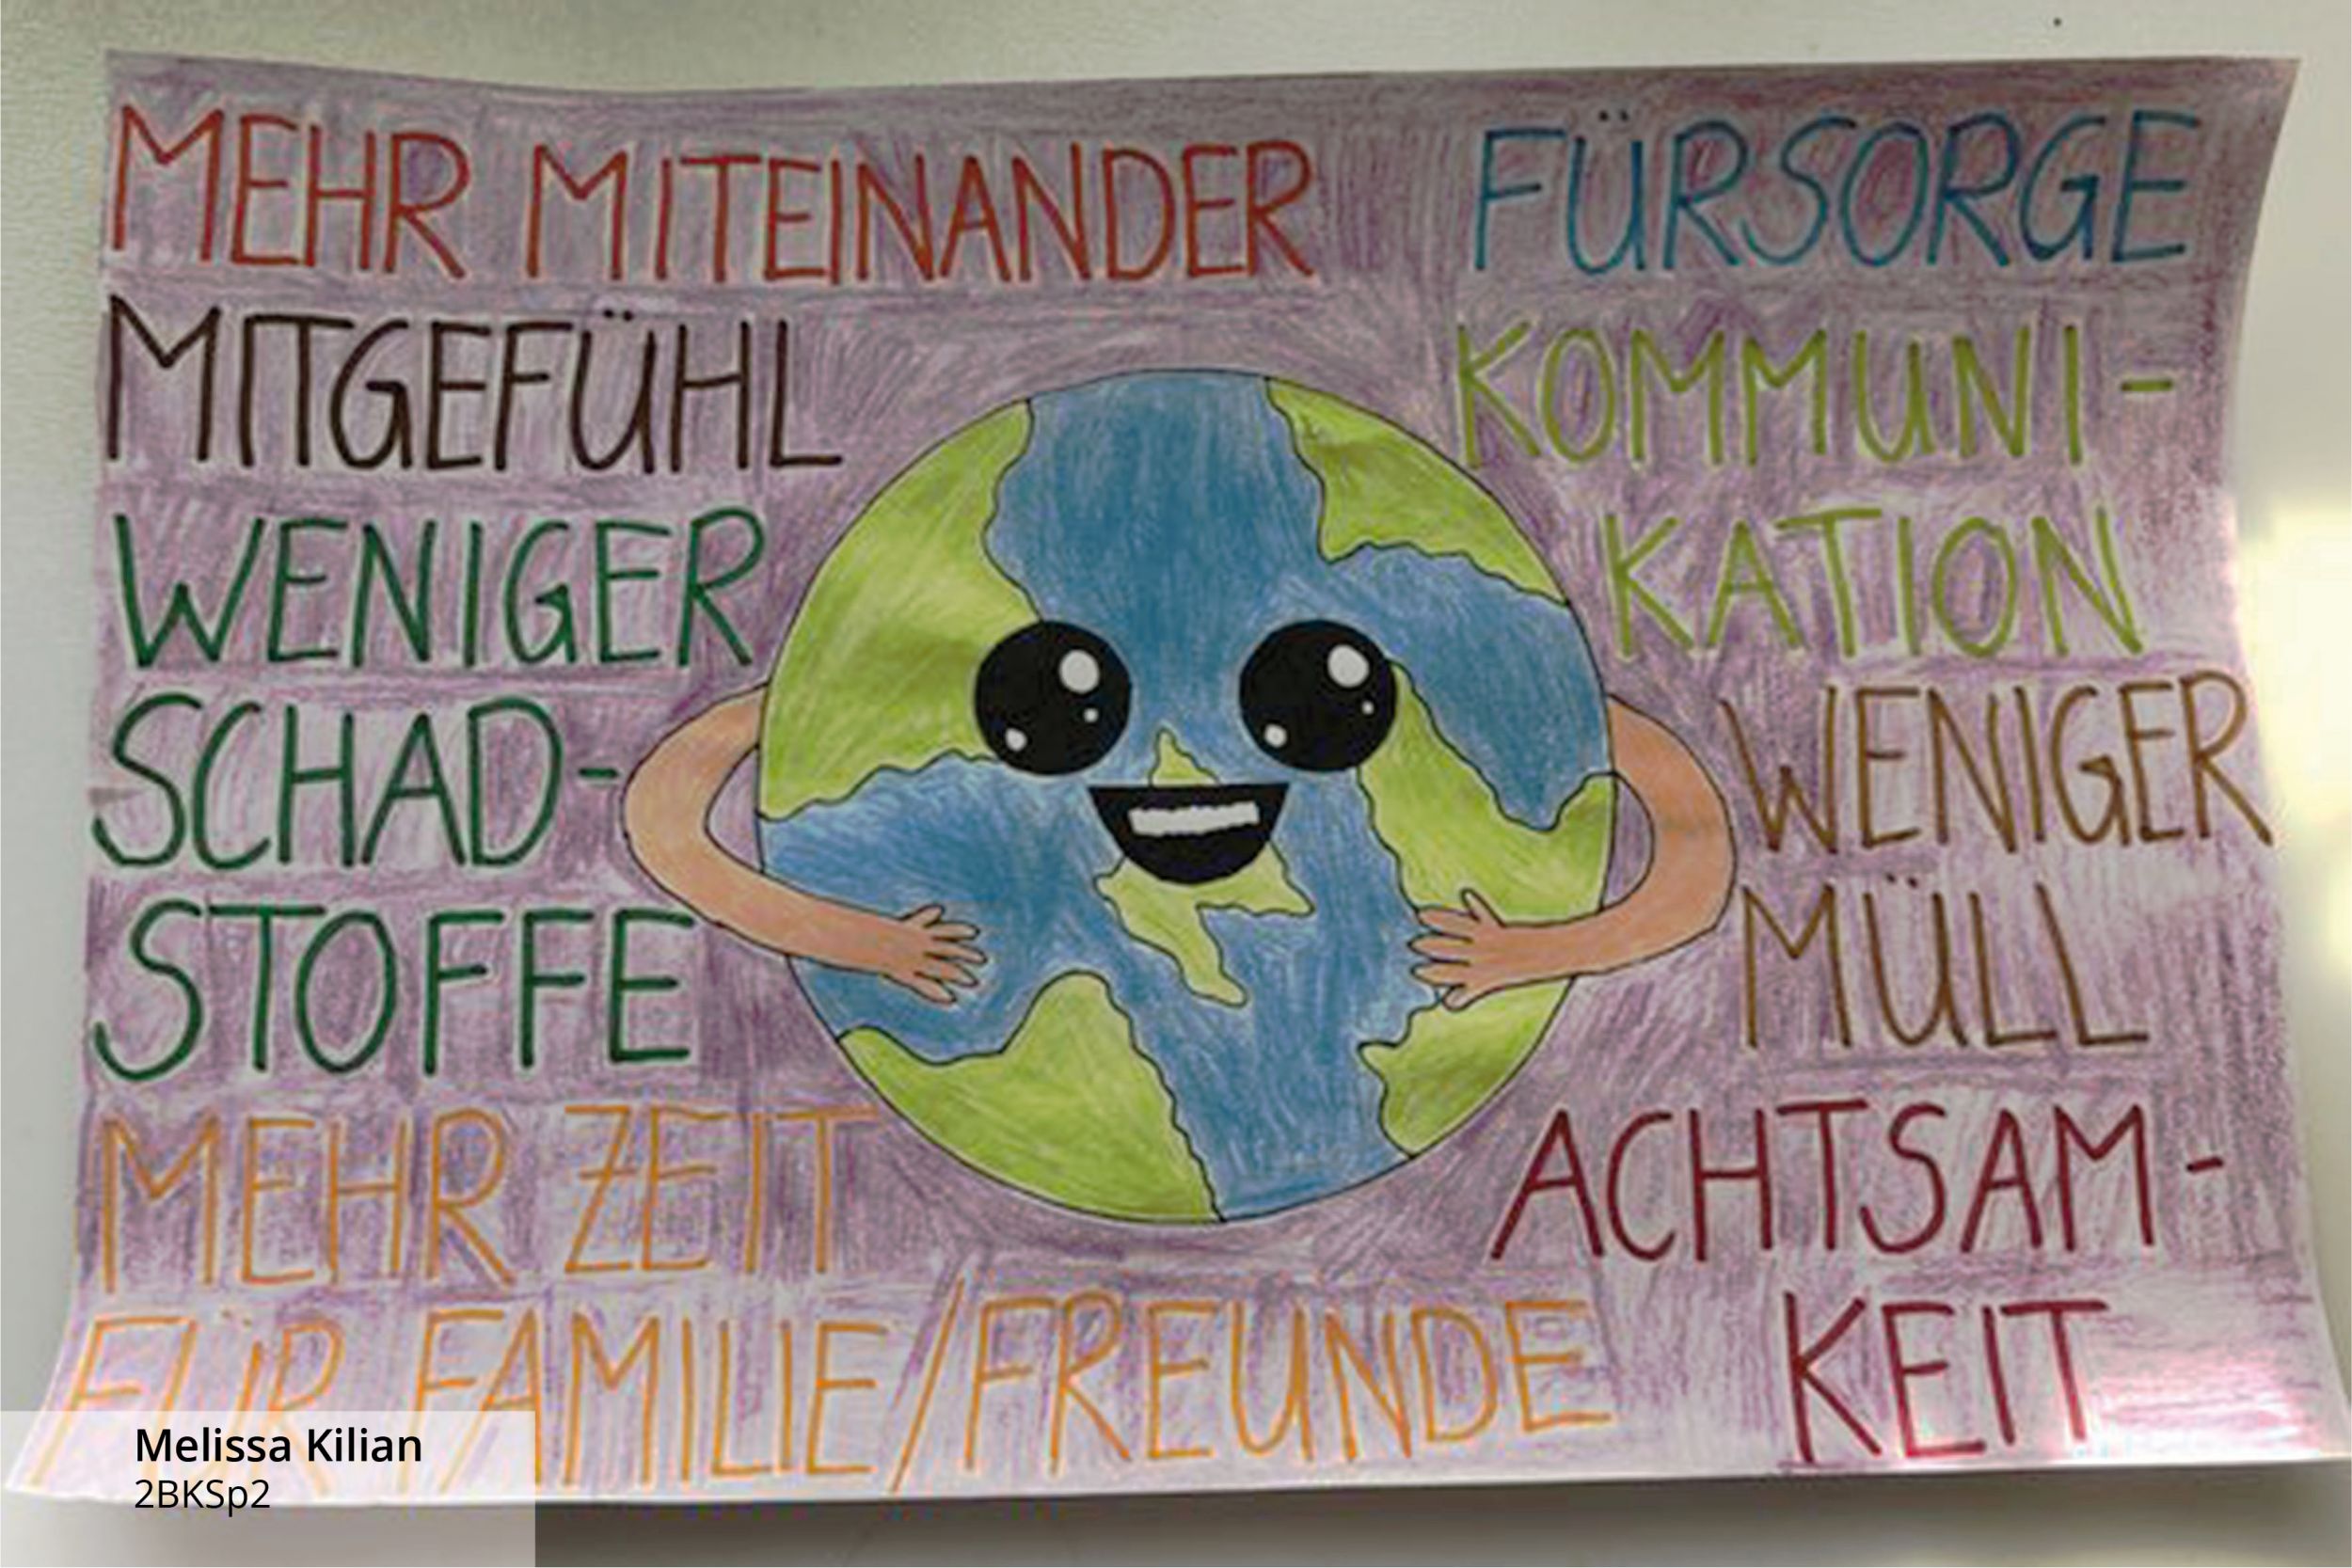 MEHR MITEINANDER
MITGEFÜHL
WENIGER
SCHAD-
STOFFE
MEHR ZEIT
FÜR FAMILIE/FREUNDE
FÜRSORGE
KOMMUNI-
KATION
WENIGER
MÜLL
ACHTSAM-
KEIT
Melissa Kilian
2BKSp2